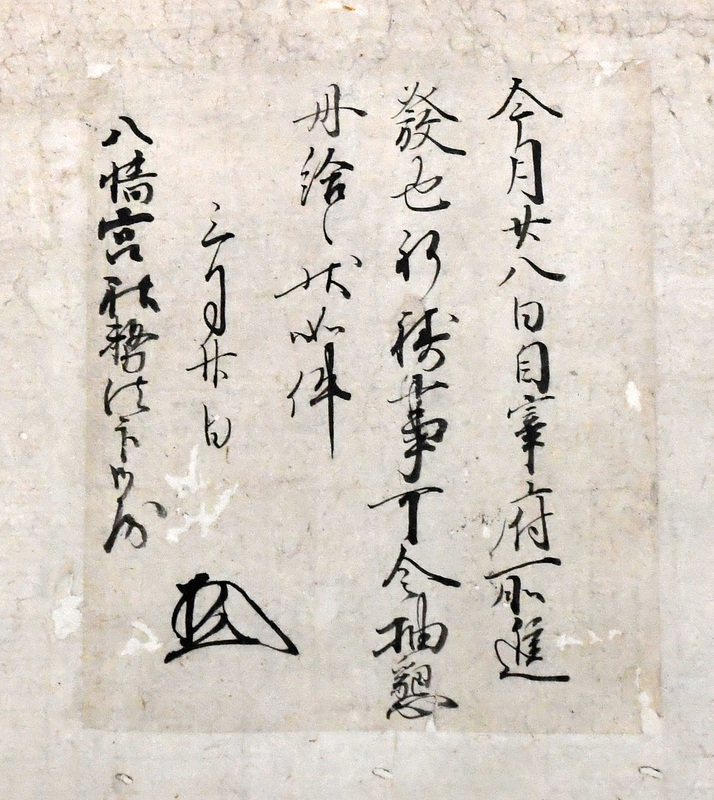 今月廿八日自宰府所進
發也祈祷事可令抽懇
丹給之状如件
三月廿日
八幡宮社務法印御房